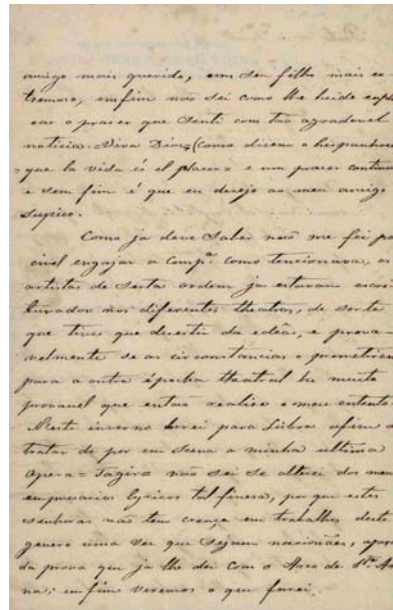 amigo mais querido, um seu filho mais ex-
tremoso, emfim não sei como lhe heide expli
car o praser que senti com tão agradavel
noticia. =Viva Dios, (como disem o hespanhoes
que la vida és el placer= e um praser continuo
e sem fim é que eu desejo ao meu amigo
Supico.
Como ja deve Saber não me foi po
civel engajar a Compª. como tencionava, os
artistas de Serta ordem ja estavam escri
turados nos diferentes theatros, de sorte
que tive que desestir da edêa, e prova-
velmente se as circonstancias o prometirem
para a outra épocha theatral he muito
provavel que entaõ realise o meu entento.
Neste inverno hirei para Lisboa afim d
tratar de por em Scena a minha ultima
Opera = não sei se obterei dos meus
empresarios lyricos tal finesa, por que estes
senhores não tem crença em trabalhos deste
genero uma vez que sejam nacionães, apesar
da prova que ja lhe dei com o Arco de Stª. An
na; emfim veremos o que farei.